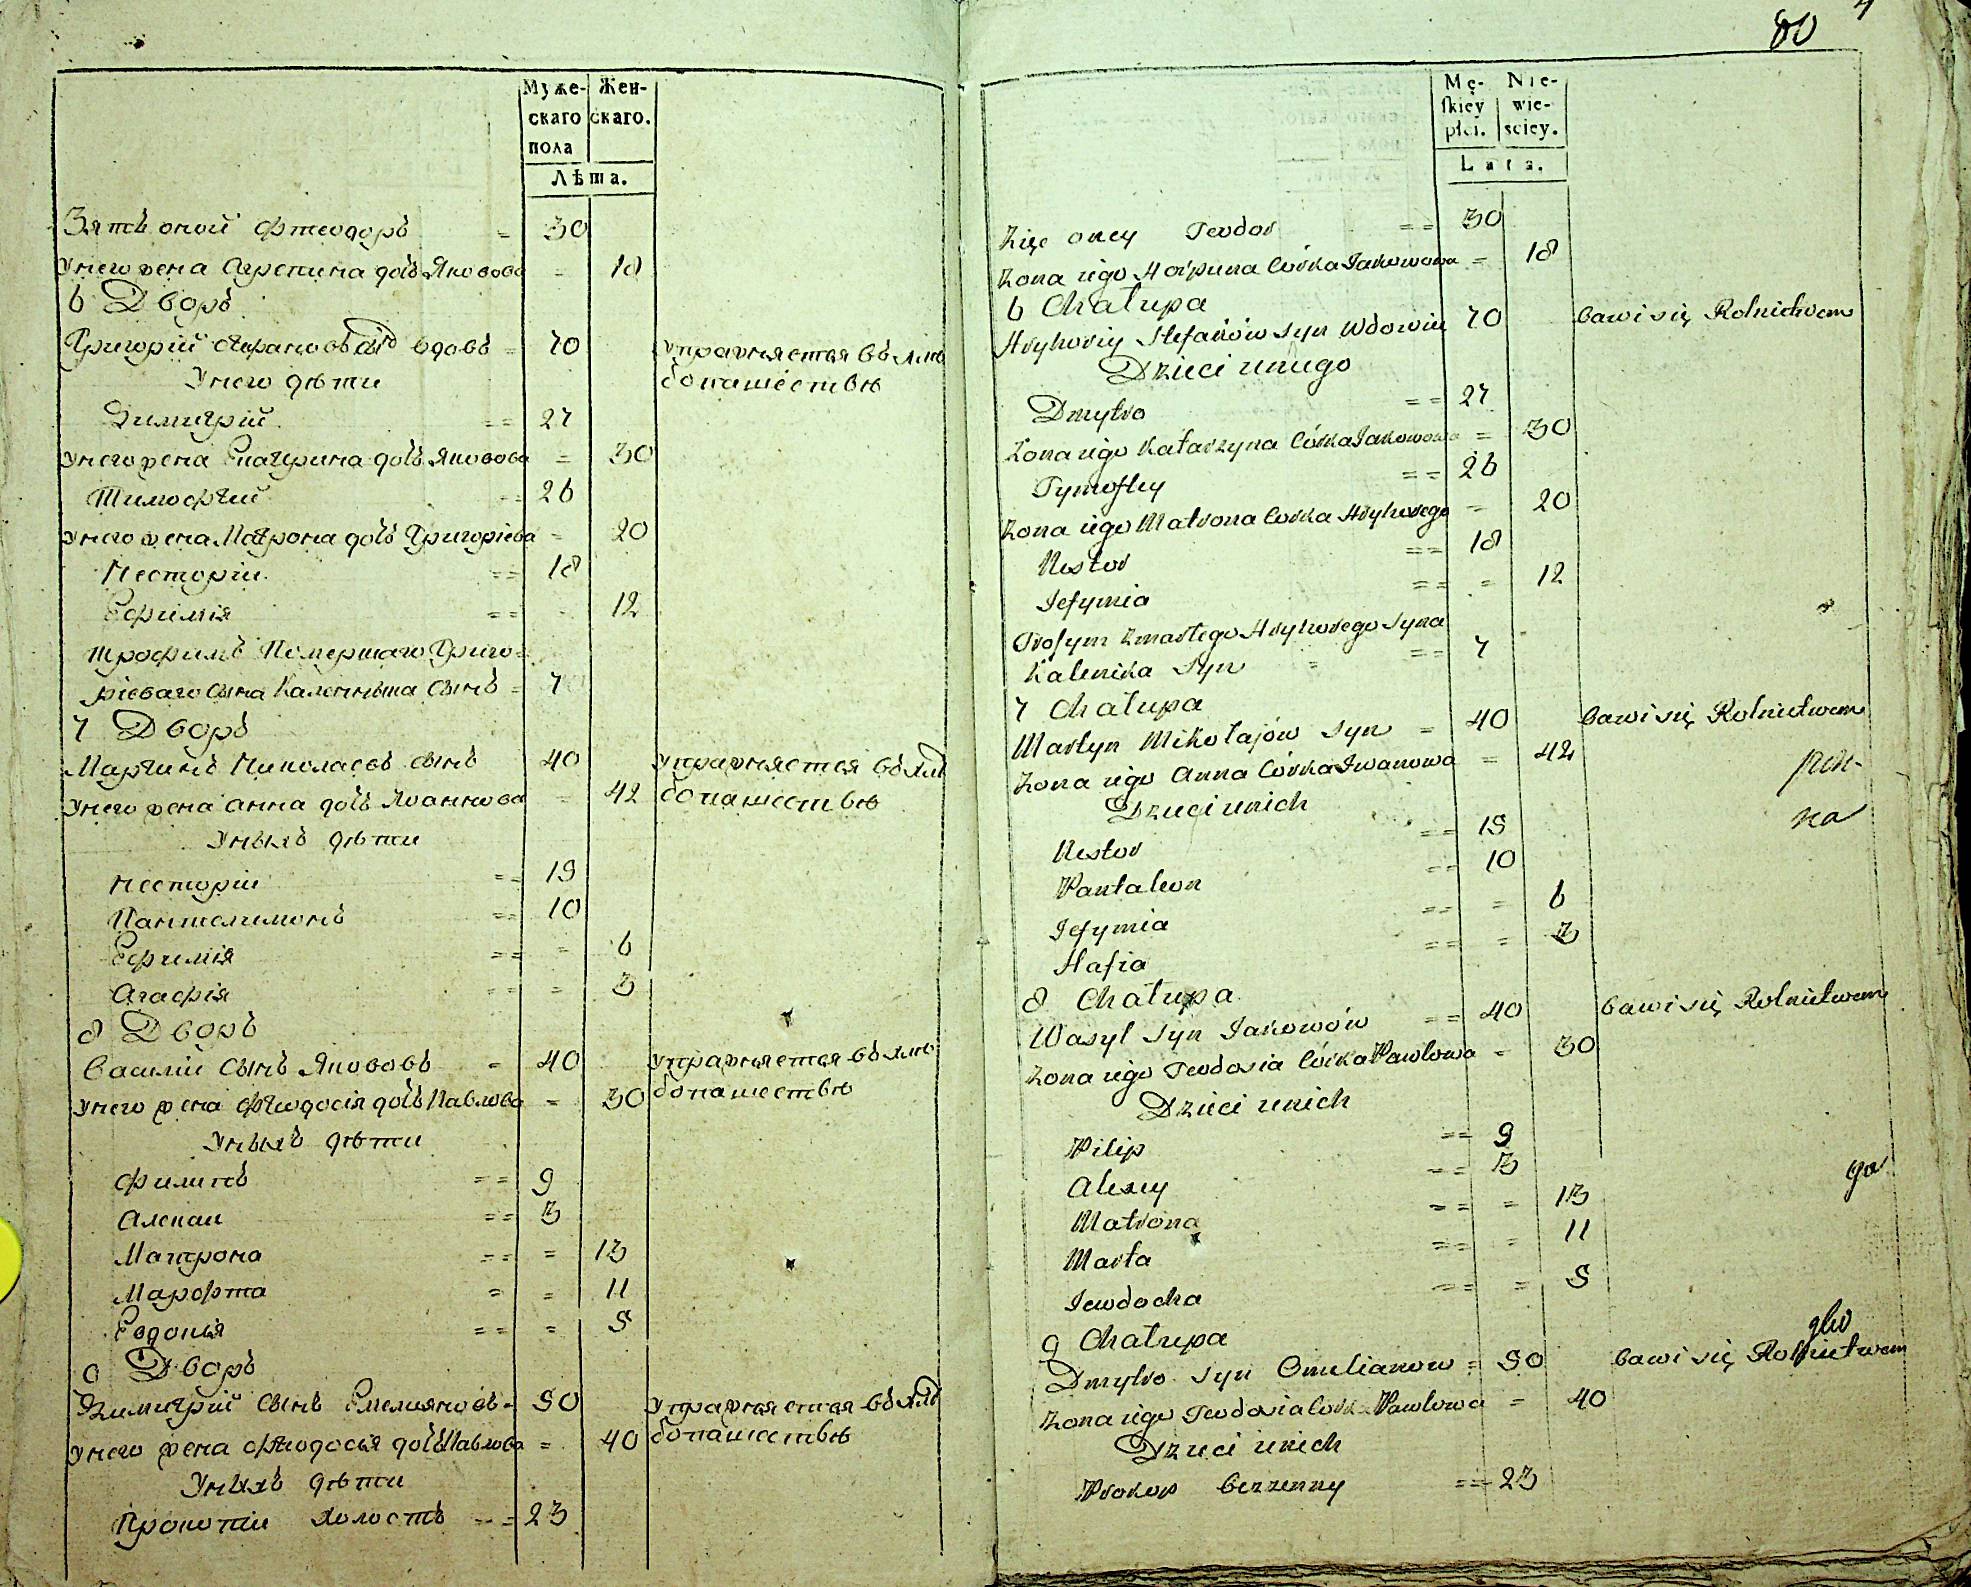 Муже-
скаго
пола
Жен-
скаго.
Лѣта.
Зять оной Фтеодоръ = 30
Унего жена Агрепина дочь Яковова = 18
6 Дворъ
Григорий Стефановъ сынъ вдовъ = 70 упражняется въ хлѣ
бопашествѣ
Унего дѣти
Димитрий == 27
Унего жена Екатерина дочь Яковова = 30
Тимофѣй == 26
Унего жена Матрона дочь Григоріева = 20
Несторіи == 18
Ефимія == 12
Трофимъ Помершаго Григо=
ріеваго сына Калениька сынъ = 7
7 Дворъ
Мартинъ Николаевъ сынъ 40 упражняется въ хлѣ
Унего жена анна дочь Іоаннова = 42 бопашествѣ
Уныхъ дѣти
Несторіи == 15
Пантелимонъ == 10
Ефимія == = 6
Агафія == = 3
8 Дворъ
Василіи сынъ Якововъ = 40 упражняется въ хлѣ
Унего жена Фтеодосія дочь Павлова = 30 бопашествѣ
Уныхъ дѣти
Филипъ == 9
Алекѣи == 3
Матрона == = 13
Марфта = = 11
Евдокія == = 5
9 Дворъ
Димитрий сынъ Емелияновъ = 50 упражняется въ хлѣ
Унего жена Фтеодосья дочь Павлова = 40 бопашествѣ
Уныхъ дѣти
Прокопіи холостъ == 23
80
Mę-
skiey
płci.
Nie-
wie-
sciey.
Lata.
Zięc oney Teodor == 30
Zona iego Horpuna Córka Jakowowa = 18
6 Chałupa
Hryhoriy Stefanów syn Wdowiec 70 bawi się Rolnictwem
Dzieci uniego
Dmytro == 27
Zona iego Katarzyna Córka Jakowowa = 30
Tymofiey == 26
Zona iego Matrona Córka Hryhorego = 20
Nestor == 18
Jefymia == = 12
Trofym Zmarłego Hryhorego Syna
Kalenika Syn == 7
7 Chałupa
Martyn Mikołajów Syn = 40 bawi się Rolnictwem
Zona iego Anna Córka Iwanowa = 42
Dzieci unich
Nestor == 15
na
Pantaleon == 10
Jefymia == = 6
Hafia == = 3
8 Chałupa
Wasyl Syn Jakowów == 40 bawi się Rolnictwem
Zona iego Teodosia Córka Pawlowa = 30
Dzieci unich
Pilip == 9
Alexey == 3
Matrona == = 13
Marta == = 11
Jewdocha == = 5
9 Chałupa
Dmytro Syn Omelianow = 50 bawi się Rolnictwem
Zona iego Teodosia Cork Pawlowa = 40
Dzieci unich
Prokop bezzenny == 23